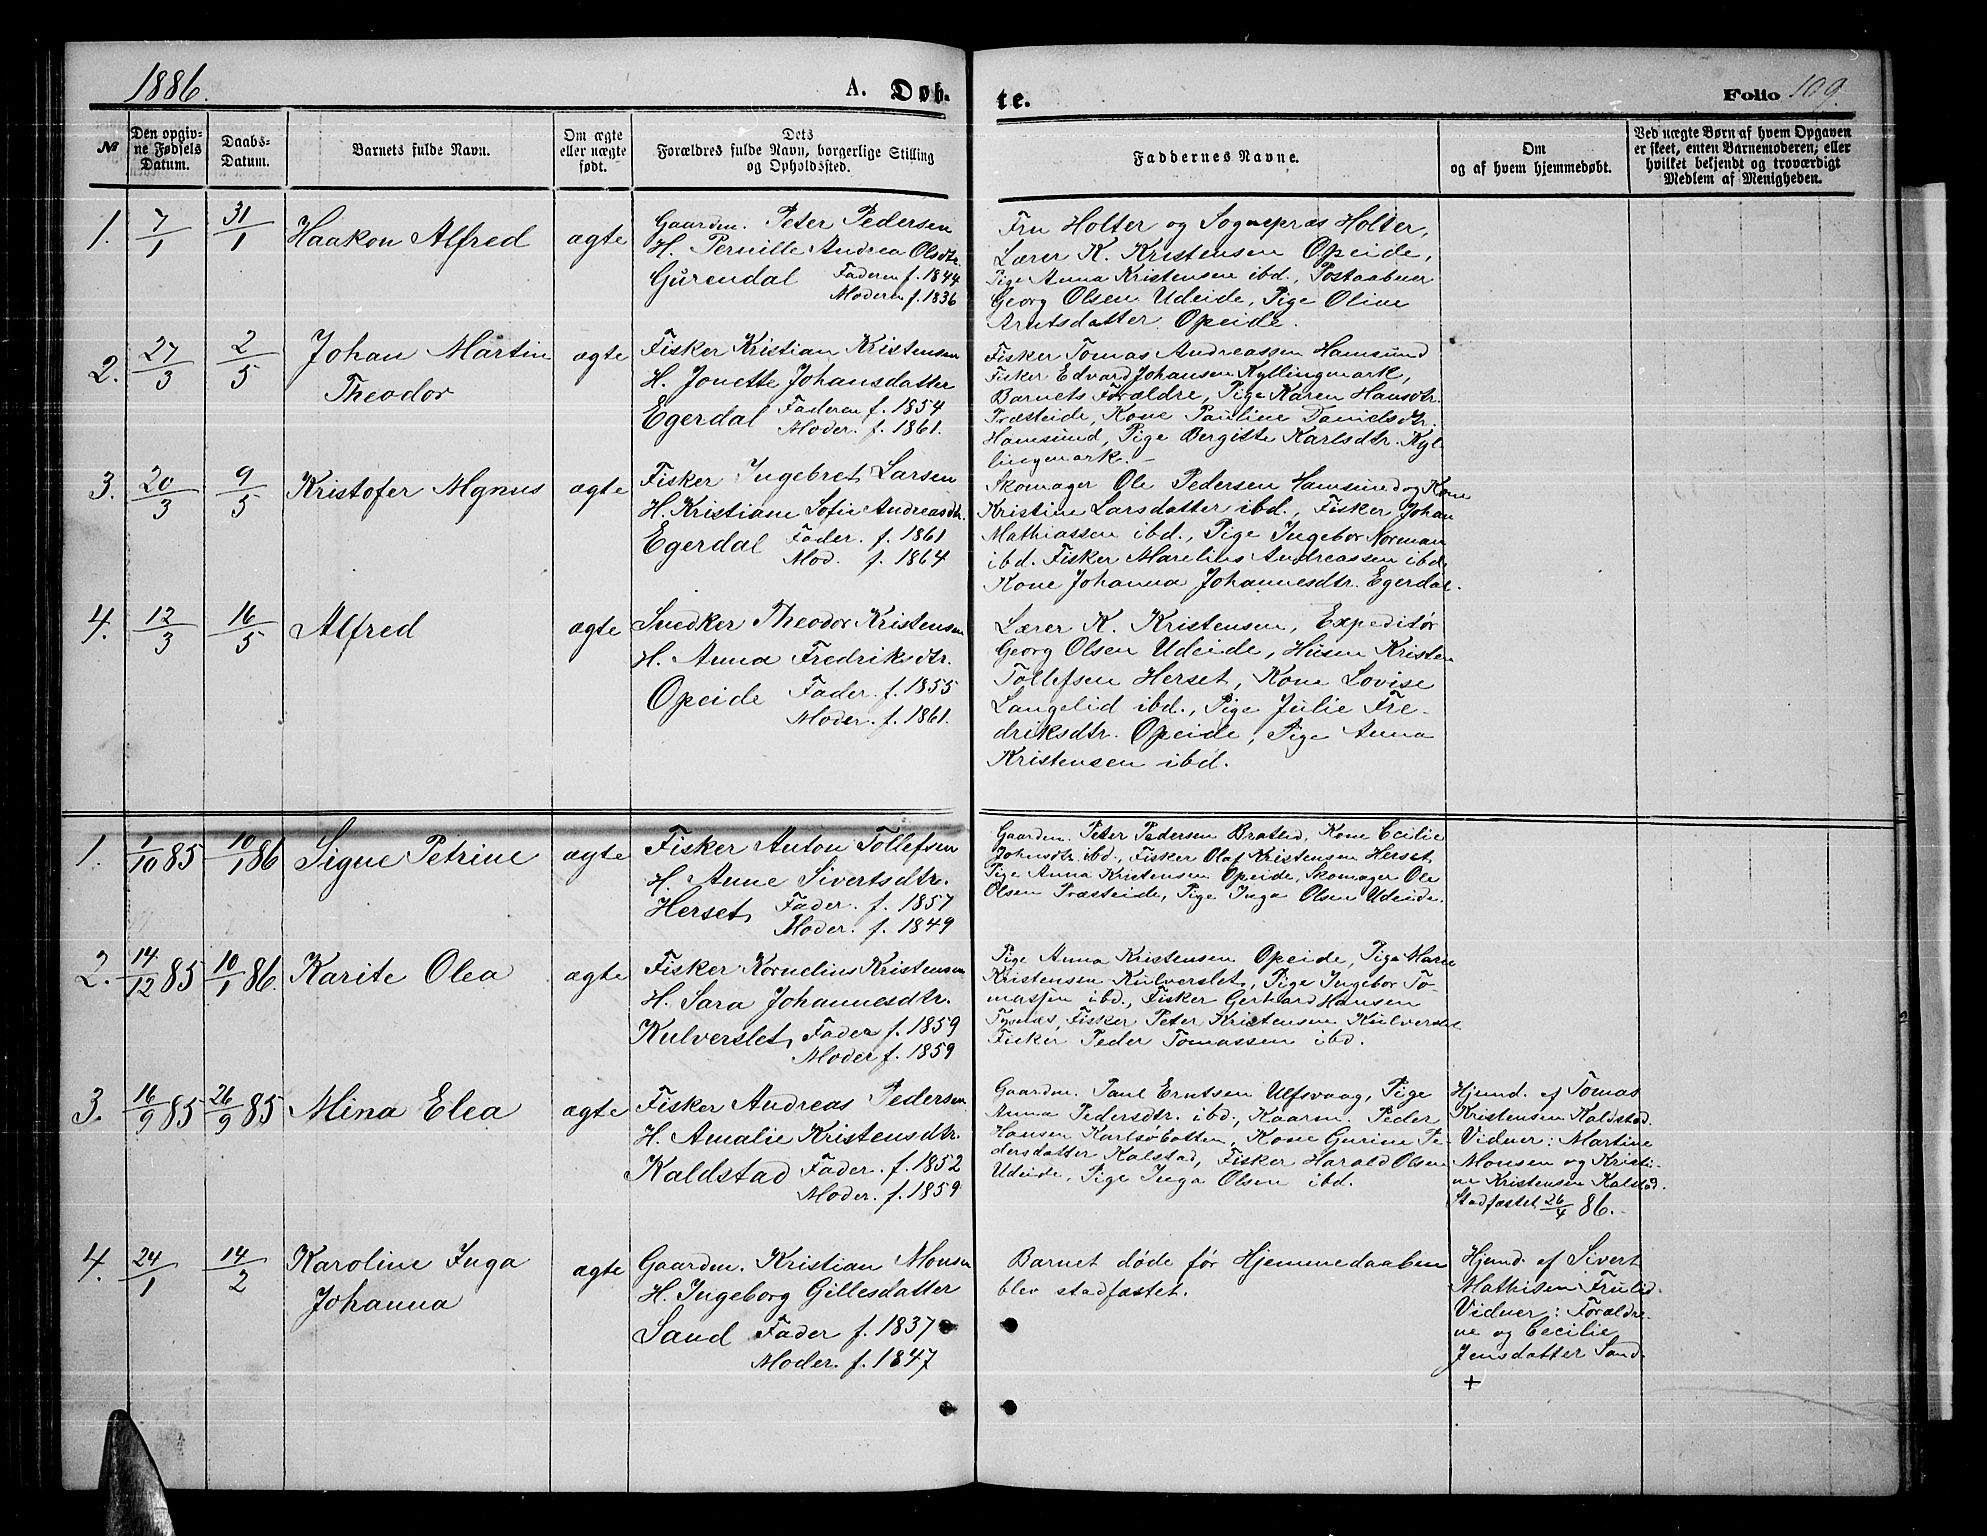 1886.
A. Døb-
te.
Folio 109.
№
Den opgiv-
ne Fødsels
Datum.
Daabs-
Datum.
Barnets fulde Navn.
Om ægte
eller uægte
født.
Dets
Forældres fulde Navn, borgerlige Stilling
og Opholdssted.
Faddernes Navne.
Om
og af hvem hjemmedøbt.
Ved uægte Børn af hvem Opgaven
er skeet, enten Barnemoderen; eller
hvilket bekjendt og troværdigt
Medlem af Menigheden.
1. 7/1 31/1 Haakon Alfred ægte
Gaardm. Peter Pedersen
H. Pernille Andrea Olsdtr.
Gürendal Faderen f. 1844
Moderen f. 1836
Fru Holter og Sognepræs Holter,
Lærer K. Kristensen Opeide,
Pige Anna Kristensen ibd., Postaabner
Georg Olsen Udeide, Pige Oline
Arntsdatter Opeide.
2. 27/3 2/5 Johan Martin ægte
Theodor
Fisker Kristian Kristensen
H. Jonette Johansdatter
Egerdal Faderen f. 1854
Moder. f. 1861.
Fisker Tomas Andreassen Hamsund
Fisker Edvard Johansen Kyllingmark,
Barnets Forældre, Pige Karen Hansdtr.
Præsteide, Kone Pauline Danielsdtr.
Hamsund, Pige Bergitte Karlsdtr. Kyl-
lingmark.
3. 20/3 9/5 Kristofer Mgnus ægte
Fisker Ingebret Larsen
H. Kristiane Sofie Andreasdtr.
Egerdal Fader. f. 1861
Mod. f. 1864
Skomager Ole Pedersen Hamsund og Kone
Kristine Larsdatter ibd., Fisker Johan
Mathiassen ibd., Pige Ingebor Norman
ibd. Fisker Marelius Andreassen ibd.
Kone Johanna Johannesdtr. Egerdal.
4. 12/3 16/5 Alfred ægte
Snedker Theodor Kristensen
H. Anna Fredriksdtr.
Opeide Fader. f. 1855
Moder. f. 1861.
Lærer K. Kristensen, Expeditør
Georg Olsen Udeide, Husm Kristen
Tollefsen Herset, Kone Lovise
Langelid ibd., Pige Julie Fre-
driksdtr. Opeide, Pige Anna
Kristensen ibd.
1. 1/10 85 10/1 86 Signe Petrine ægte
Fisker Anton Tollefsen
H. Anne Sivertsdtr.
Herset Fader. f. 1857
Moder. f. 1849
Gaardm. Peter Pedersen Bratlid, Kone Cecilie
Johnsdtr. ibd., Fisker Olaf Kristensen Herset
Pige Anna Kristensen Opeide, Skomager Ole
Olsen Præsteide, Pige Inga Olsen Udeide.
2. 14/12 85 10/1 86. Karite Olea ægte
Fisker Kornelius Kristensen
H. Sara Johannesdtr.
Kulverslet, Fader f. 1859
Moder f. 1859
Pige Anna Kristensen Opeide, Pige Marie
Kristensen Kulverslet, Pige Ingebor To-
massen ibd., Fisker Gerhard Hansen
Tysnæs, Fisker Peter Kristensen Kulverslet
Fisker Peder Tomassen ibd.
3. 16/9 85 26/9 85 Mina Elea ægte
Fisker Andreas Pedersen
H. Amalie Kristensdtr.
Kaldstad Fader. f. 1852
Moder. f. 1859
Gaardm. Paul Erntsen Ulfsvaag, Pige
Anna Pedersdtr. ibd., Kaarm. Peder
Hansen Karlsøbotten, Kone Gurine Pe-
dersdatter Kalstad, Fisker Harald Olsen
Udeide, Pige Inga Olsen ibd.
Hjemd. af Tomas
Kristensen Kaldstad.
Vidner: Martine
Monsen og Kristi-
ne Kristensen Kalstad.
Stadfæstet 26/4 86.
4. 24/1 14/2 Karoline Inga ægte
Johanna
Gaardm. Kristian Monsen
H. Ingeborg Gillesdatter
Sand Fader f. 1837
Moder. f. 1847
Barnet døde før Hjemmedaaben
blev stadfæstet.
Hjemd. af Sivert
Mathisen Frulid.
Vidner: Forældre-
ne og Cecilie
Jensdatter Sand.
+